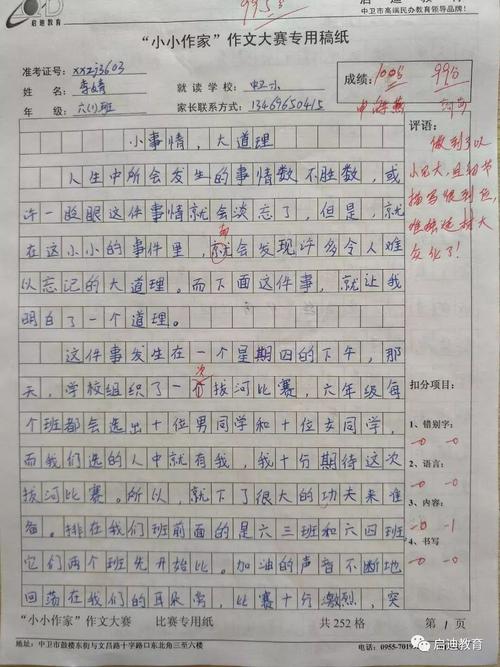 启迪教育
99.5分
启迪教育
中卫市高端民办教育领导品牌!
“小小作家”作文大赛专用稿纸
准考证号:xxzj3603
姓 名:李婧
就 读 学 校:中卫一小
年 级:六(1)班
家长联系方式:13469650415
成绩:
100分
99分
评语:
做到了以
小见大,且细节
描写很到位,
难
题材大
众化了!
小事情,大道理
人生中所会发生的事情数不胜数,或
许一眨眼这件事情就会淡忘了,但是,就
在这小小的事件里,就会发现许多令人难
以忘记的大道理。而下面这件事,就让我
明白了一个道理。
这件事发生在一个星期四的下午,那
次
天,学校组织了一个拔河比赛,六年级每
个班都会选出十位男同学和十位女同学,
而我们选的人中就有我,我十分期待这次
拔河比赛。所以,就下了很大的功夫来准
备。排在我们班前面的是六三班和六四班
它们两个班先开始比。加油的声音不断地
回荡在我们的耳朵旁,比赛十分激烈,突
扣分项目:
1、错别字:
-0 -0
2、语言:
-0 -0
3、内容:
-0 -1
4、书写
-0 -0
“小小作家”作文大赛 比赛专用纸 共 252 格 第 1 页
地址:中卫市鼓楼东街与文昌路十字路口东北角三至六楼
电话:0955-7019
启迪教育